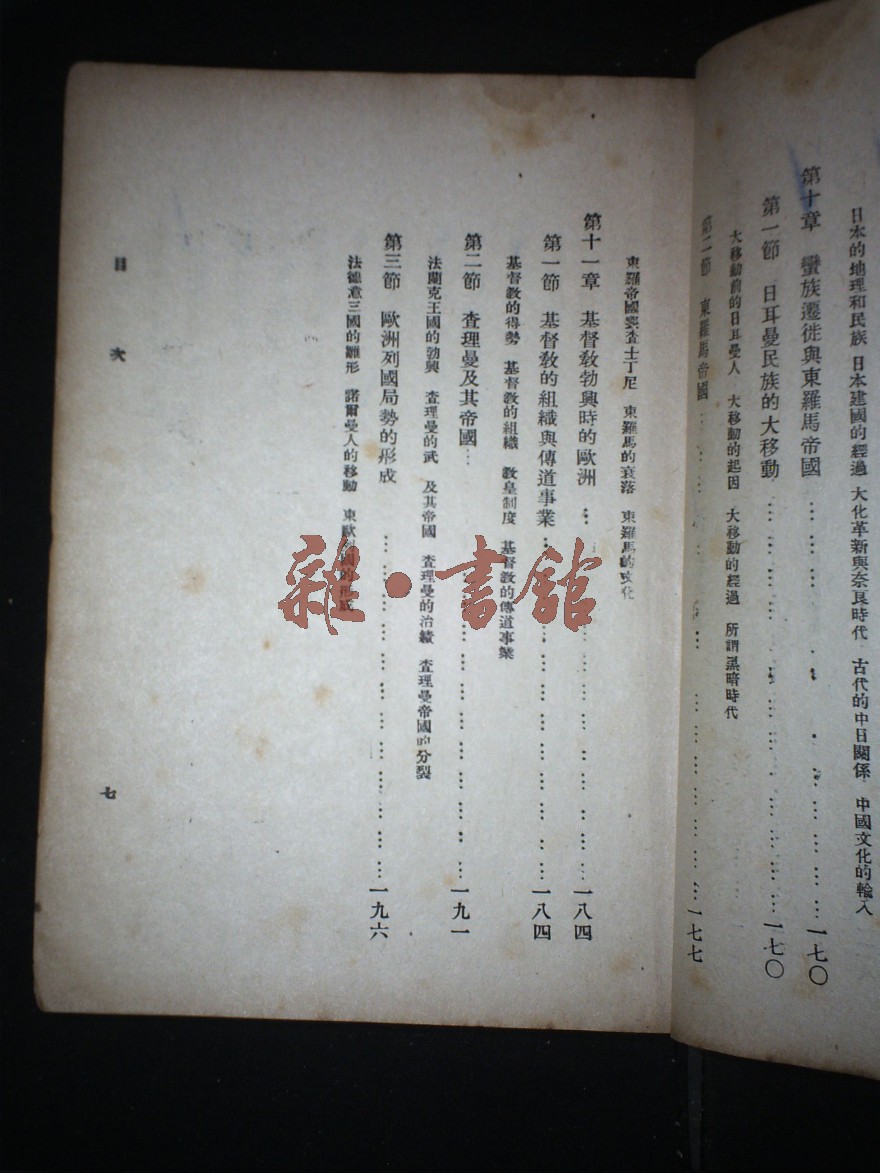 日本的地理和民族 日本建國的經過 大化革新與奈良時代 古代的中日關係 中國文化的輸入
第十章 蠻族遷徙與東羅馬帝國……一七〇
第一節 日耳曼民族的大移動……一七〇
大移動前的日耳曼人 大移動的起因 大移動的經過 所謂黑暗時代
第二節 東羅馬帝國……一七七
東羅帝國與查士丁尼 東羅馬的衰落 東羅馬的文化
第十一章 基督教勃興時的歐洲……一八四
第一節 基督教的組織與傳道事業……一八四
基督教的得勢 基督教的組織 教皇制度 基督教的傳道事業
第二節 查理曼及其帝國……一九一
法蘭克王國的勃興 查理曼的武 及其帝國 查理曼的治績 查理曼帝國的分裂
第三節 歐洲列國局勢的形成……一九六
法德意三國的雛形 諾爾曼人的移動 東歐列國的形成
目次
七
雜·書館